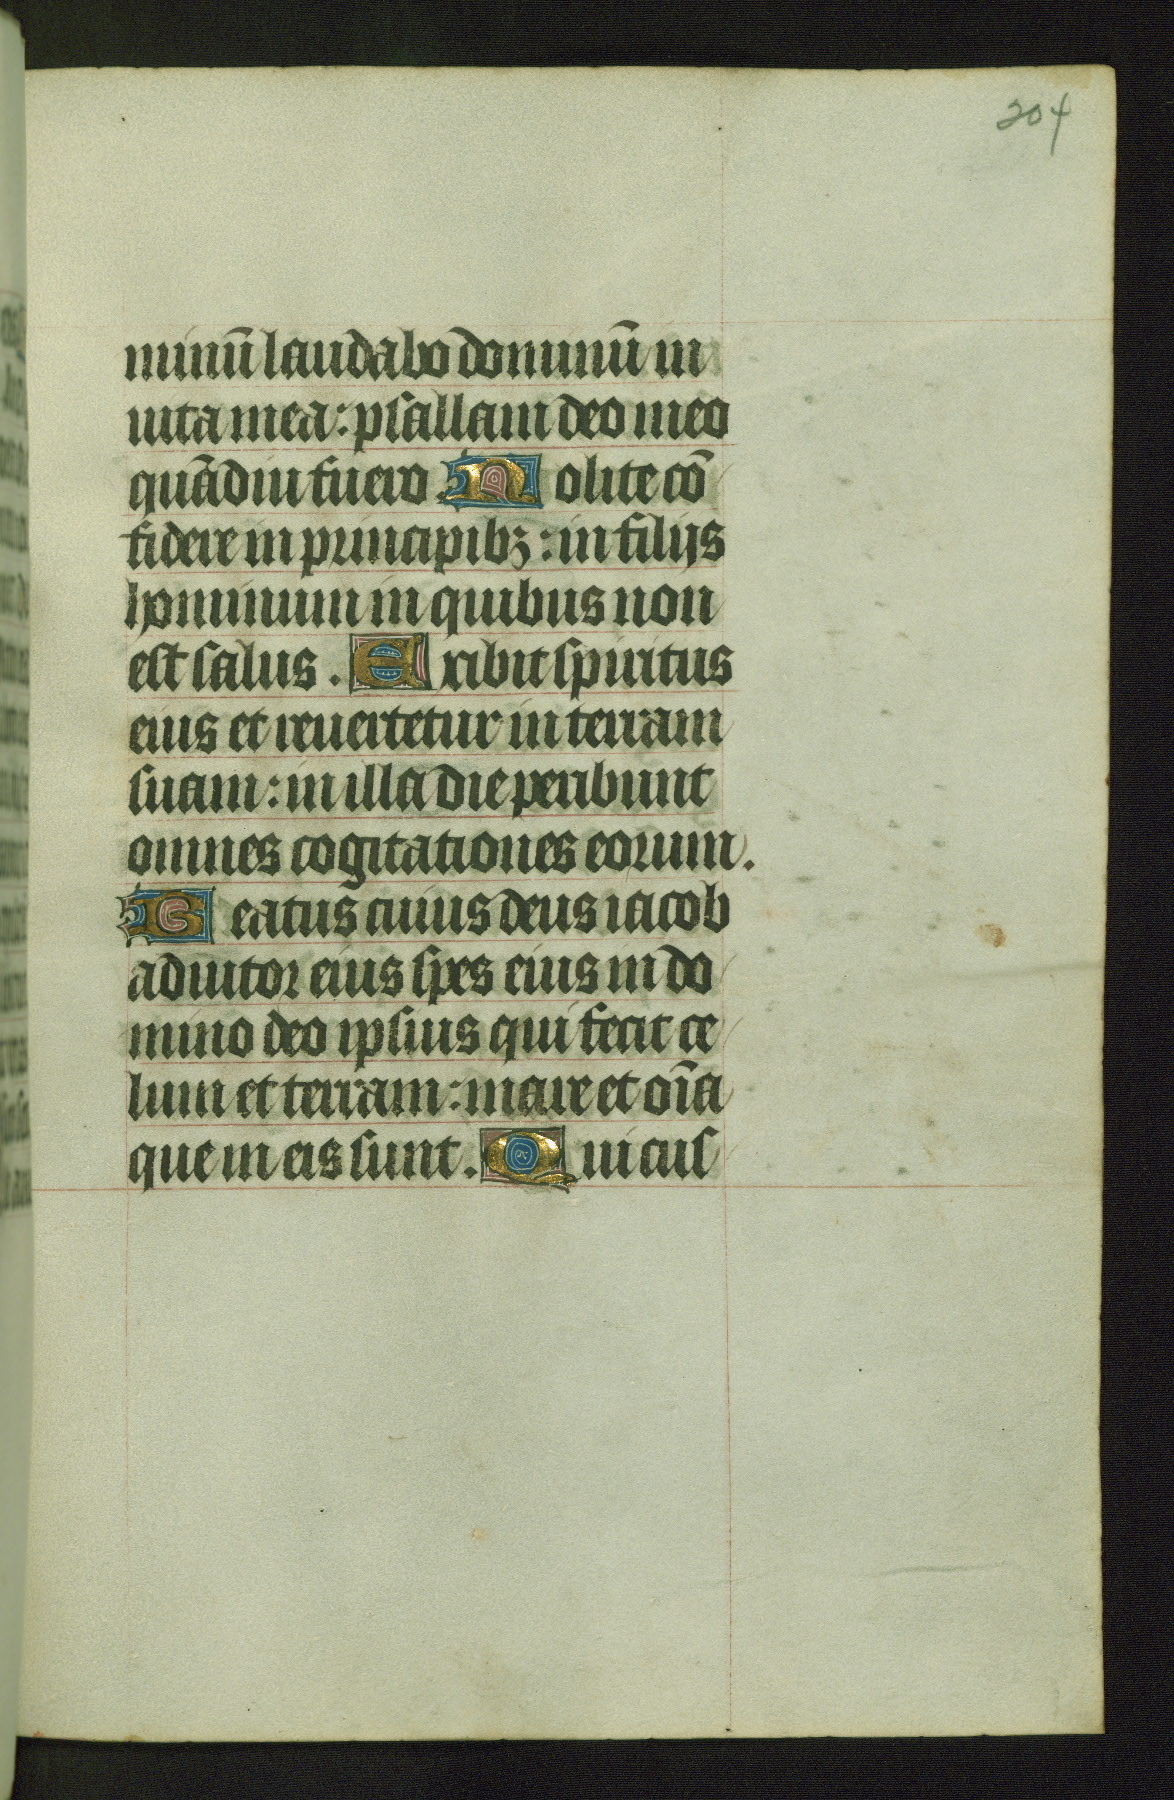 204
minū laudabo dominū in
uita mea: psallam deo meo
quādiu fuero Nolite cō
fidere in principibꝫ: in filijs
hominum in quibus non
est salus. Exibit spiritus
eius et reuertetur in terram
suam: in illa die peribunt
omnes cogitationes eorum.
Beatus cuius deus iacob
adiutor eius spes eius in do
mino deo ipsius qui fecit ce
lum et terram: mare et oīa
que in eis sunt. Qui cus